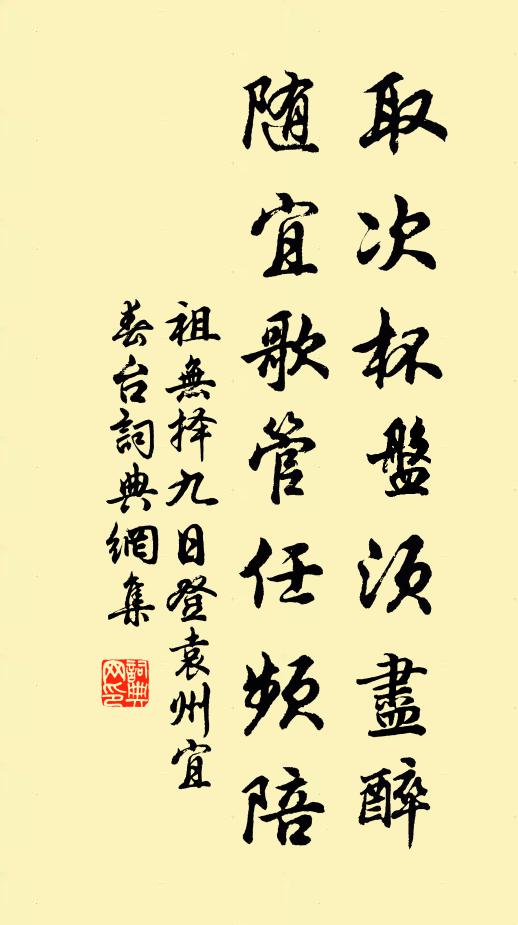 取次杯盤須盡醉
随宜歌管任頻陪
祖無择九日登袁州宜
春台詞典網集
詞典
网印